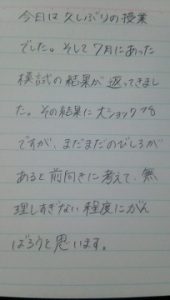 今日は久しぶりの授業
でした。そして7月にあった
模試の結果が返ってきまし
た。その結果に大ショックでも
ですが、まだまだのびしろが
あると前向きに考えて、無
理しすぎない程度にがん
ばろうと思います。